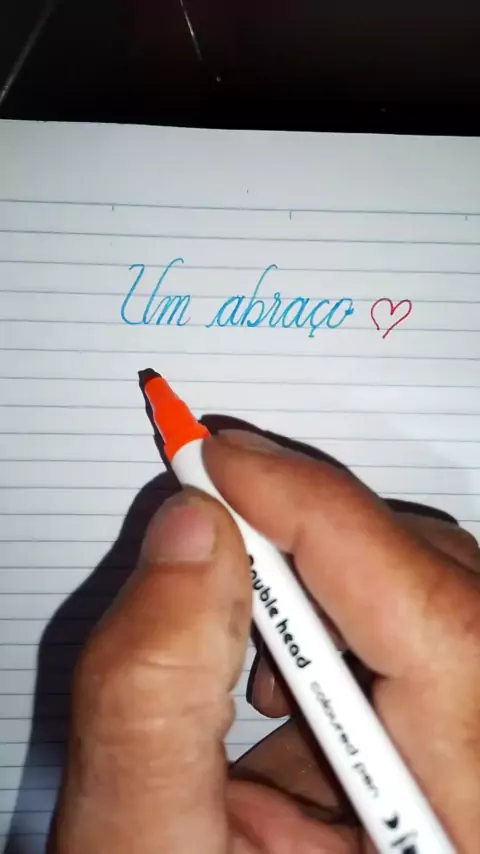 Um abraço
Double head
coloured pen